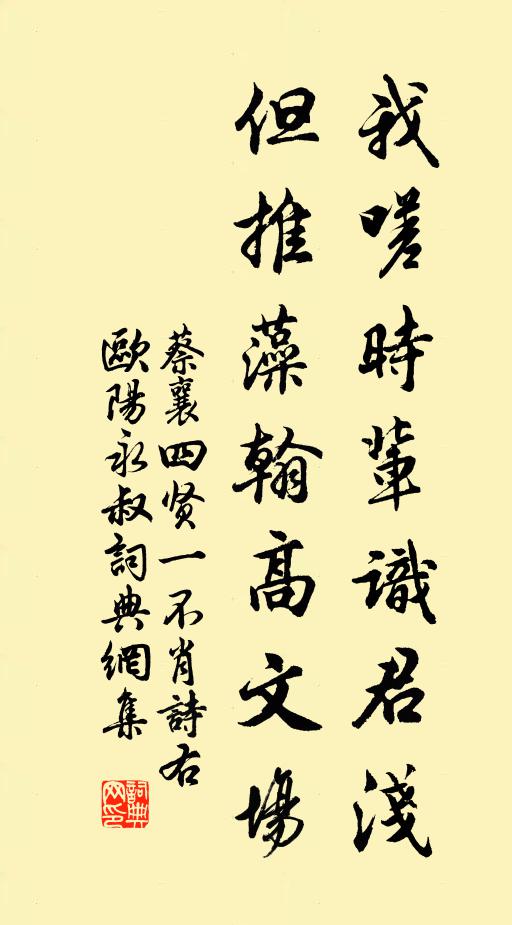 我嗟時輩識君淺
但推藻翰高文場
蔡襄四贤一不肖詩右
歐陽永叔詞典網集
詞典网印